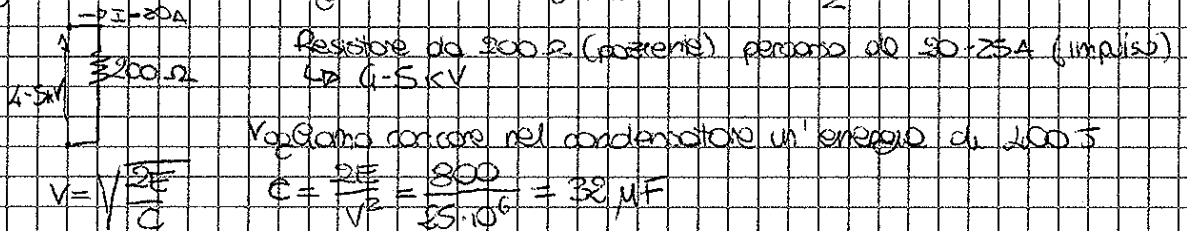 → I=20A
Resistore da 200Ω (paziente) percorso da 20-25A (impulso)
200Ω
↳ 4-5 kV
4-5kV
Vogliamo caricare nel condensatore un'energia di 400J
V = √(2E/C) C = 2E/V² = 800/25·10⁶ = 32 μF